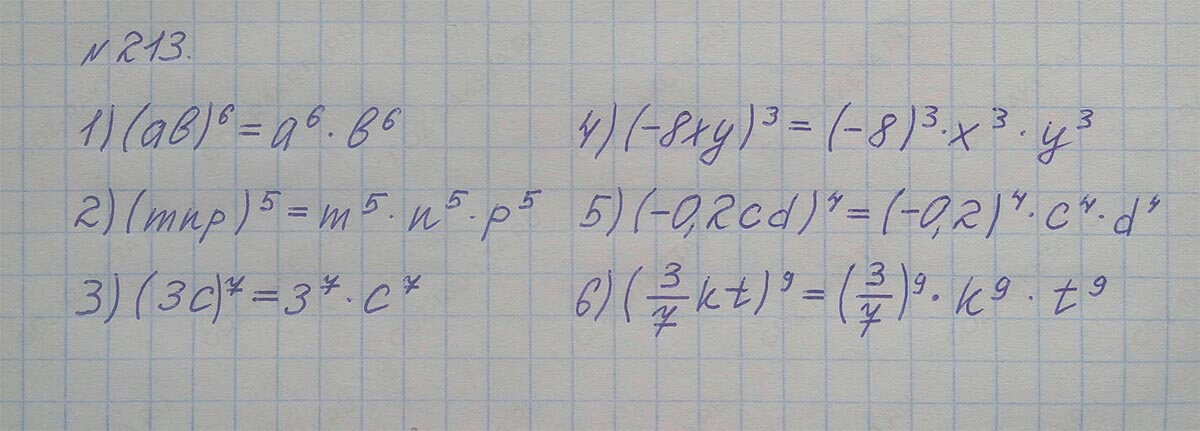 №213.
1) (ab)⁶ = a⁶ · b⁶
2) (mnp)⁵ = m⁵ · n⁵ · p⁵
3) (3c)⁷ = 3⁷ · c⁷
4) (-8xy)³ = (-8)³ · x³ · y³
5) (-0,2cd)⁴ = (-0,2)⁴ · c⁴ · d⁴
6) (3/7 kt)⁹ = (3/7)⁹ · k⁹ · t⁹